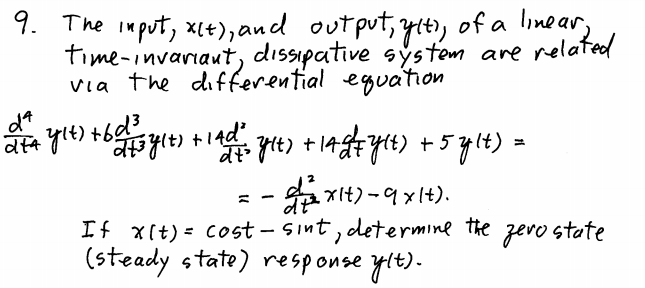 9. The input, x(t), and output, y(t), of a linear,
time-invariant, dissipative system are related
via the differential equation
d⁴/dt⁴ y(t) + 6d³/dt³ y(t) + 14d²/dt² y(t) + 14d/dt y(t) + 5y(t) =
= - d²/dt² x(t) - 9x(t).
If x(t) = cost - sint, determine the zero state
(steady state) response y(t).